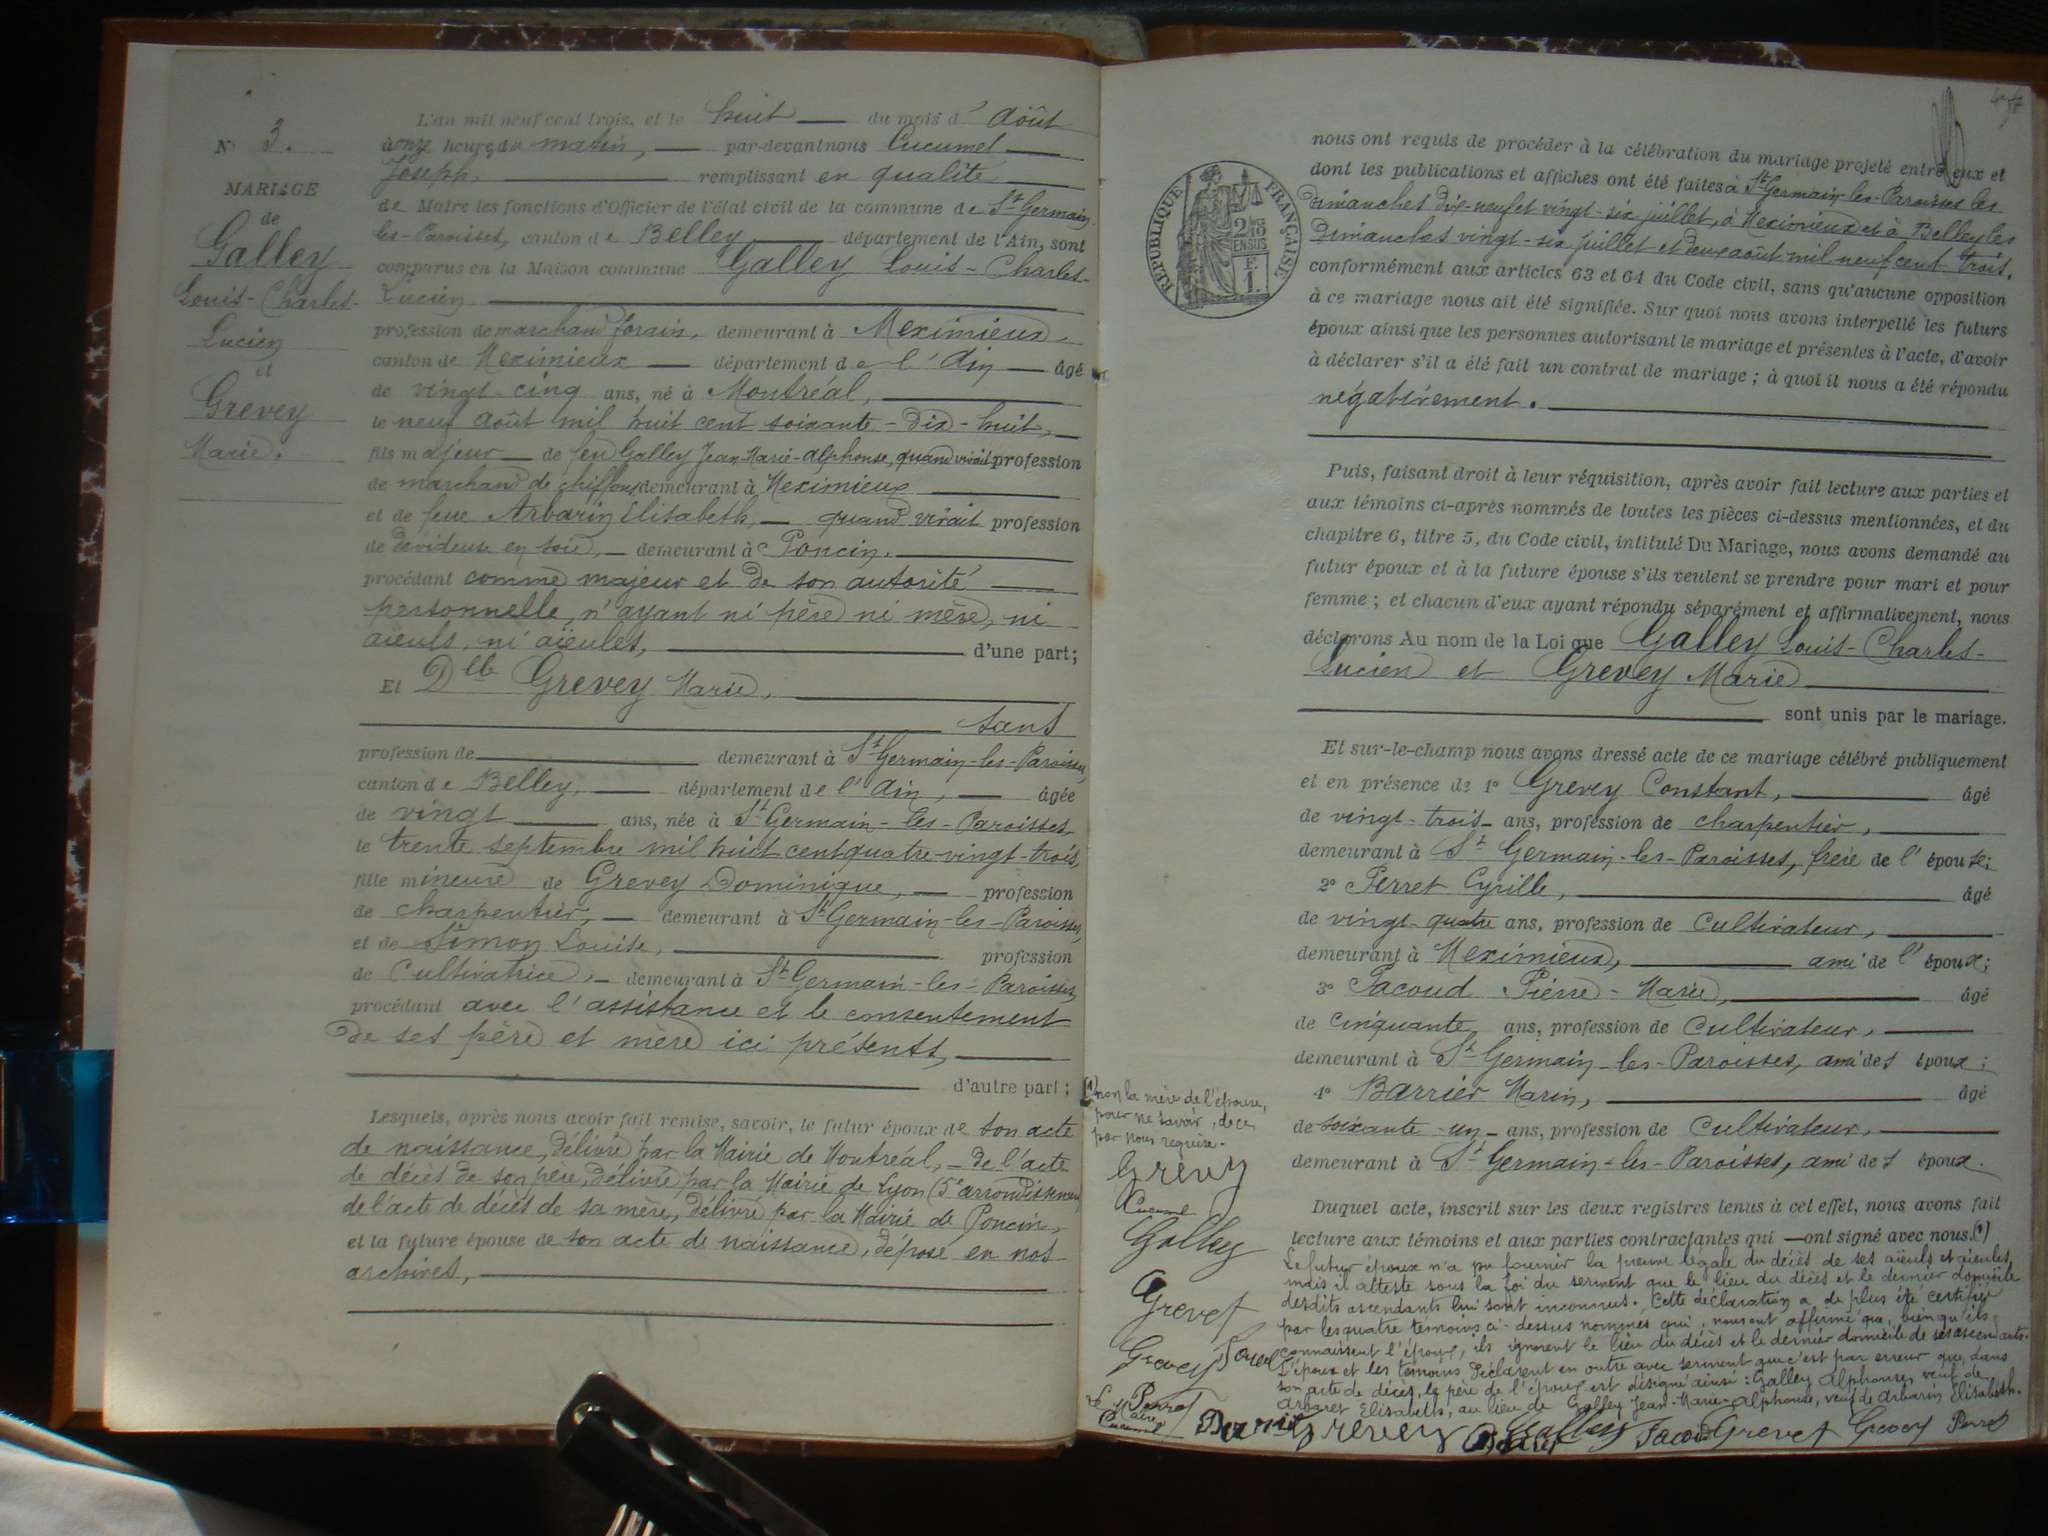 N° 3.
MARIAGE
de
Galley
Louis-Charles-
Lucien
et
Grevey
Marie.
L'an mil neuf cent trois, et le huit du mois d'Août
à onze heures du matin, par-devant nous Cucumel
Joseph, remplissant en qualité
de Maire les fonctions d'Officier de l'état civil de la commune de St Germain-
les-Paroisses, canton de Belley département de l'Ain, sont
comparus en la Maison commune Galley Louis-Charles-
Lucien
profession de marchand forain, demeurant à Meximieux,
canton de Meximieux département de l'Ain âgé
de vingt-cinq ans, né à Montréal,
le neuf Août mil huit cent soixante-dix-huit,
fils majeur de feu Galley Jean-Marie-Alphonse, quand vivait profession
de marchand de chiffons demeurant à Meximieux
et de feue Arbarin Elisabeth, quand vivait profession
de dévideuse en soie, demeurant à Poncin.
procédant comme majeur et de son autorité
personnelle, n'ayant ni père ni mère, ni
aïeuls, ni aïeules, d'une part;
Et Dlle Grevey Marie,
sans
profession de demeurant à St Germain-les-Paroisses,
canton de Belley, département de l'Ain, âgée
de vingt ans, née à St Germain-les-Paroisses
le trente septembre mil huit cent quatre-vingt-trois,
fille mineure de Grevey Dominique, profession
de charpentier, demeurant à St Germain-les-Paroisses,
et de Simon Louise, profession
de Cultivatrice, demeurant à St Germain-les-Paroisses,
procédant avec l'assistance et le consentement
de ses père et mère ici présents,
d'autre part;
Lesquels, après nous avoir fait remise, savoir, le futur époux de son acte
de naissance, délivré par la Mairie de Montréal, de l'acte
de décès de son père, délivré par la Mairie de Lyon (5e arrondissement)
de l'acte de décès de sa mère, délivré par la Mairie de Poncin,
et la future épouse de son acte de naissance, déposé en nos
archives,
RÉPUBLIQUE FRANÇAISE
2/10
EN SUS
F.
1.
nous ont requis de procéder à la célébration du mariage projeté entre eux et
dont les publications et affiches ont été faites à St Germain-les-Paroisses les
dimanches dix-neuf et vingt-six juillet, à Meximieux et à Belley les
dimanches vingt-six juillet et deux août mil neuf cent trois,
conformément aux articles 63 et 64 du Code civil, sans qu'aucune opposition
à ce mariage nous ait été signifiée. Sur quoi nous avons interpellé les futurs
époux ainsi que les personnes autorisant le mariage et présentes à l'acte, d'avoir
à déclarer s'il a été fait un contrat de mariage; à quoi il nous a été répondu
négativement.
Puis, faisant droit à leur réquisition, après avoir fait lecture aux parties et
aux témoins ci-après nommés de toutes les pièces ci-dessus mentionnées, et du
chapitre 6, titre 5, du Code civil, intitulé Du Mariage, nous avons demandé au
futur époux et à la future épouse s'ils veulent se prendre pour mari et pour
femme; et chacun d'eux ayant répondu séparément et affirmativement, nous
déclarons Au nom de la Loi que Galley Louis-Charles-
Lucien et Grevey Marie
sont unis par le mariage.
Et sur-le-champ nous avons dressé acte de ce mariage célébré publiquement
et en présence de 1° Grevey Constant, âgé
de vingt-trois ans, profession de charpentier,
demeurant à St Germain-les-Paroisses, frère de l'épouse;
2° Perret Cyrille, âgé
de vingt-quatre ans, profession de Cultivateur,
demeurant à Meximieux, ami de l'époux;
3° Jacoud Pierre-Marie, âgé
de cinquante ans, profession de Cultivateur,
demeurant à St Germain-les-Paroisses, ami des époux;
4° Barrier Marin, âgé
de soixante-un ans, profession de Cultivateur,
demeurant à St Germain-les-Paroisses, ami des époux.
Duquel acte, inscrit sur les deux registres tenus à cet effet, nous avons fait
lecture aux témoins et aux parties contractantes qui ont signé avec nous.(1)
Le futur époux n'a pu fournir la preuve légale du décès de ses aïeuls et aïeules,
mais il atteste sous la foi du serment que le lieu du décès et le dernier domicile
desdits ascendants lui sont inconnus. Cette déclaration a de plus été certifiée
par les quatre témoins ci-dessus nommés qui, nous ont affirmé que, bien qu'ils
connaissent l'époux, ils ignorent le lieu du décès et le dernier domicile de ses ascendants.
L'époux et les témoins déclarent en outre avec serment que c'est par erreur que, dans
son acte de décès, le père de l'époux est désigné ainsi: Galley Alphonse, veuf de
Arbaret Elisabeth, au lieu de Galley Jean-Marie-Alphonse, veuf de Arbarin Elisabeth.
(1) non la mère de l'épouse,
pour ne savoir, de ce
par nous requise.
Grevey
Cucumel
Galley
Grevet
Grevey
Perret
Le Maire
Cucumel
Grevey Galley Jacoud Grevet Grevey Perret